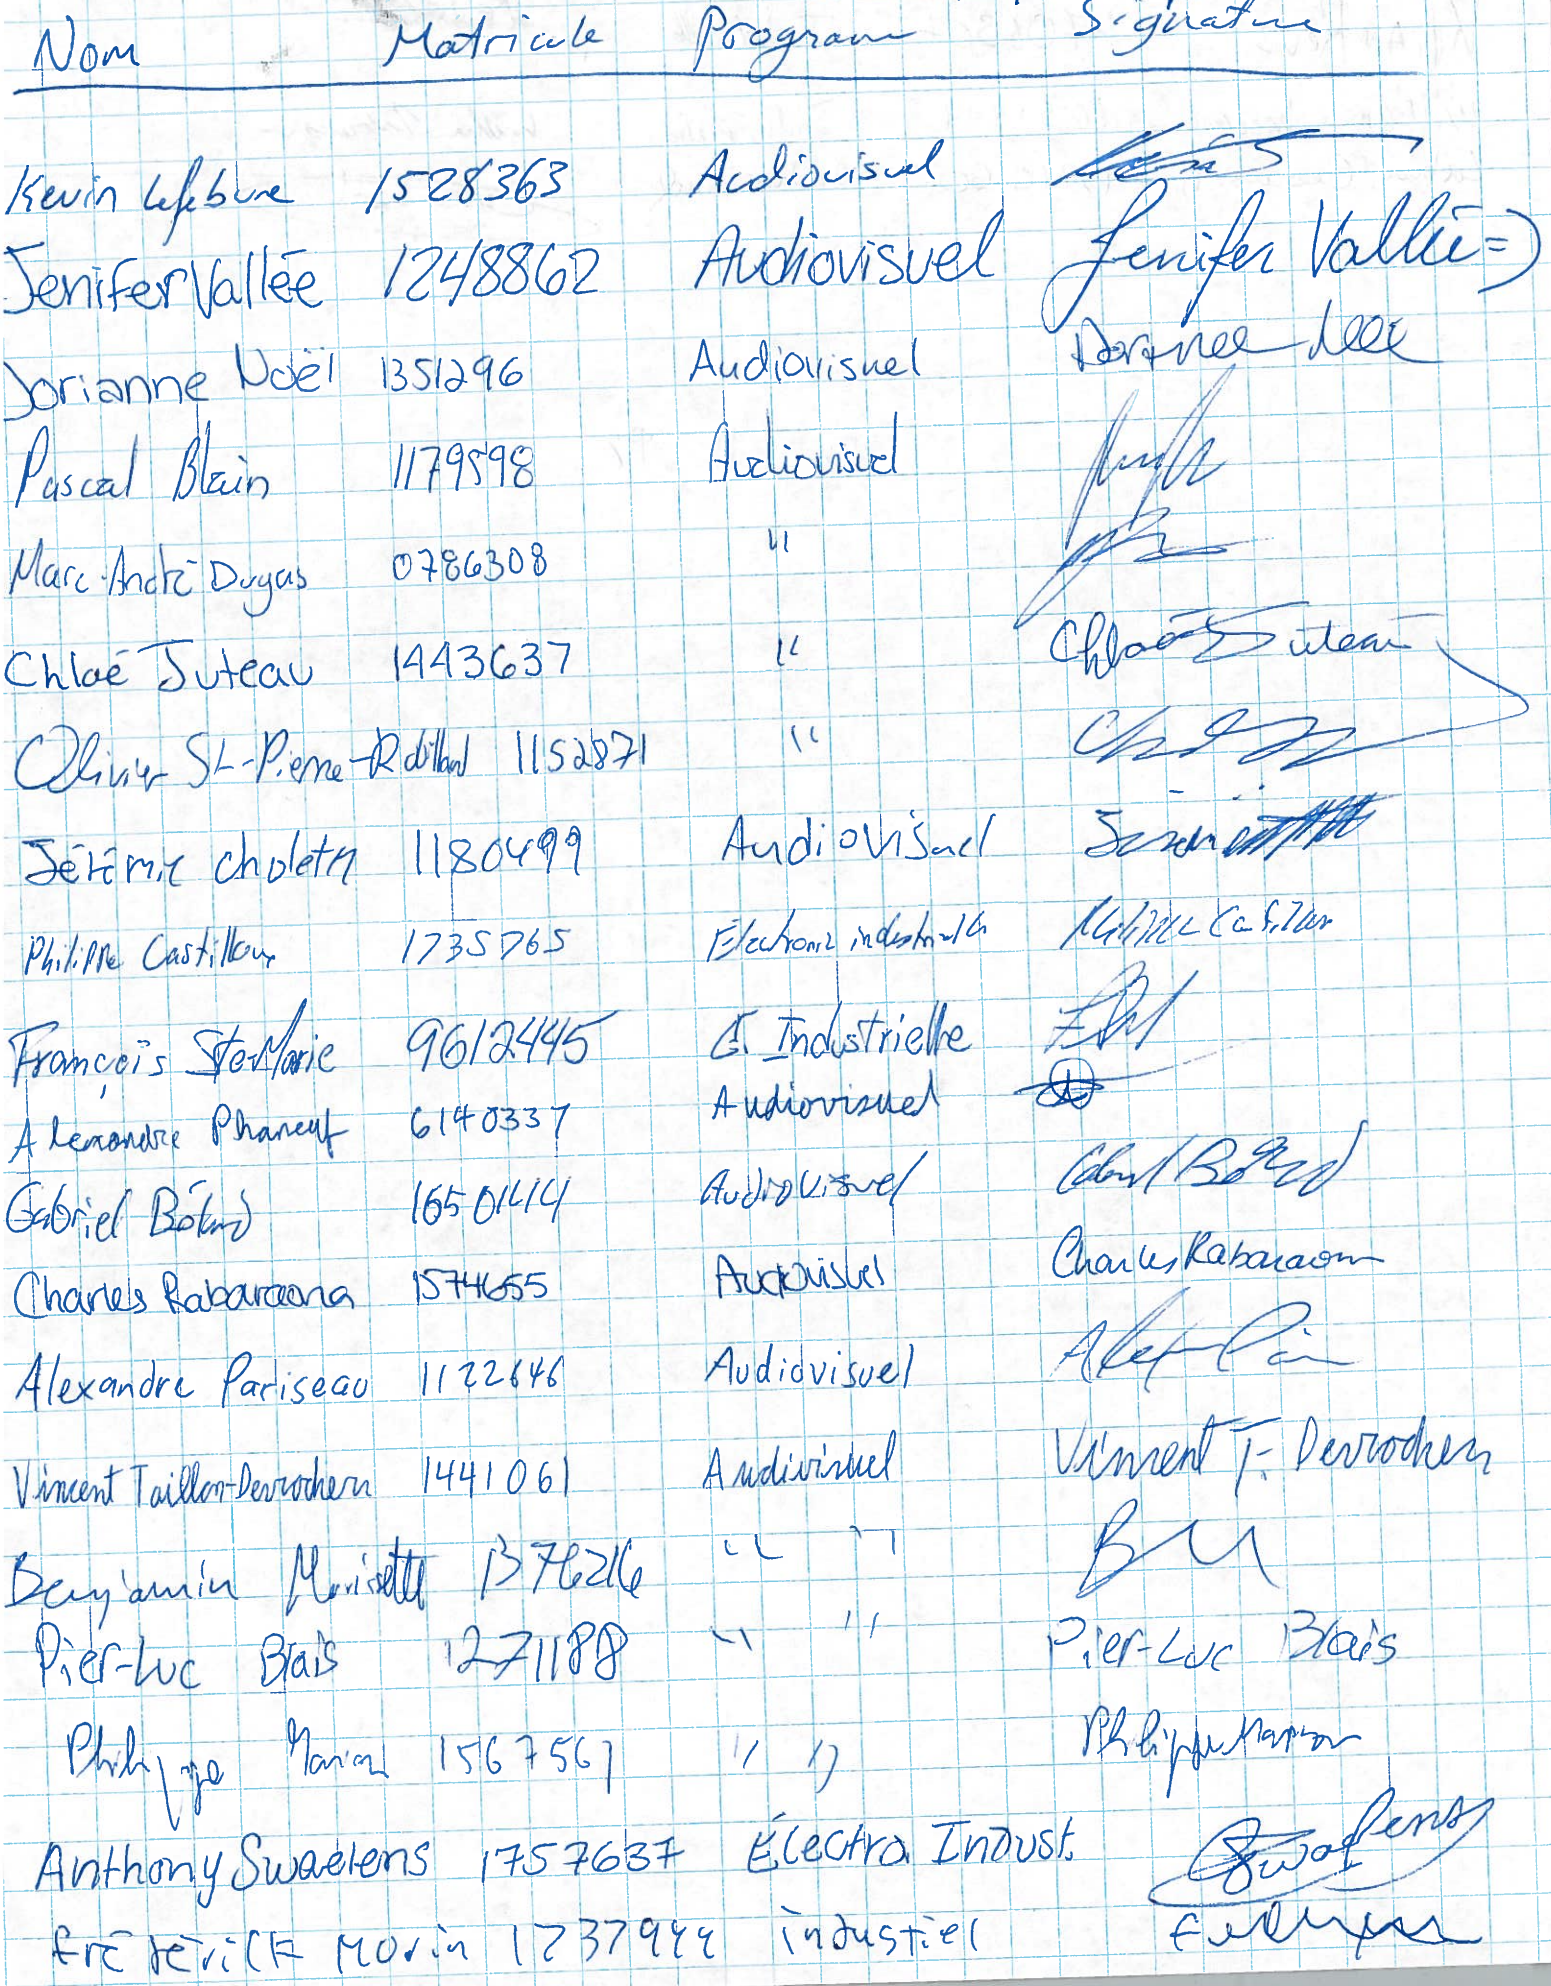 Nom Matricule Program Signature
Kevin Lefebvre 1528363 Audiovisuel
Jenifer Vallée 1248862 Audiovisuel Jenifer Vallée =)
Dorianne Noël 1351296 Audiovisuel
Pascal Blain 1179598 Audiovisuel
Marc-André Dugas 0786308 "
Chloé Juteau 1443637 " Chloé Juteau
Olivier St-Pierre-Robillard 1152871 "
Jérémie 1180499 Audiovisuel
Philippe 1735765 Electronic industrielle
François Ste-Marie 9612445 É. Industrielle
Alexandre Phaneuf 6140337 Audiovisuel
Gabriel 16501414 Audiovisuel
Charles Rabaraona 1574655 Audiovisuel Charles Rabaraona
Alexandre Pariseau 1122646 Audiovisuel
Vincent Taillon-Desrochers 1441061 Audivisuel Vincent T. Desrochers
Benjamin Morissette 1376216 " " BM
Pier-Luc Blais 1271188 " " Pier-Luc Blais
Philippe 1567567 " " Philippe
Anthony Swaelens 1757637 Électro Indust. Swaelens
Frédérick Morin 1737944 industiel